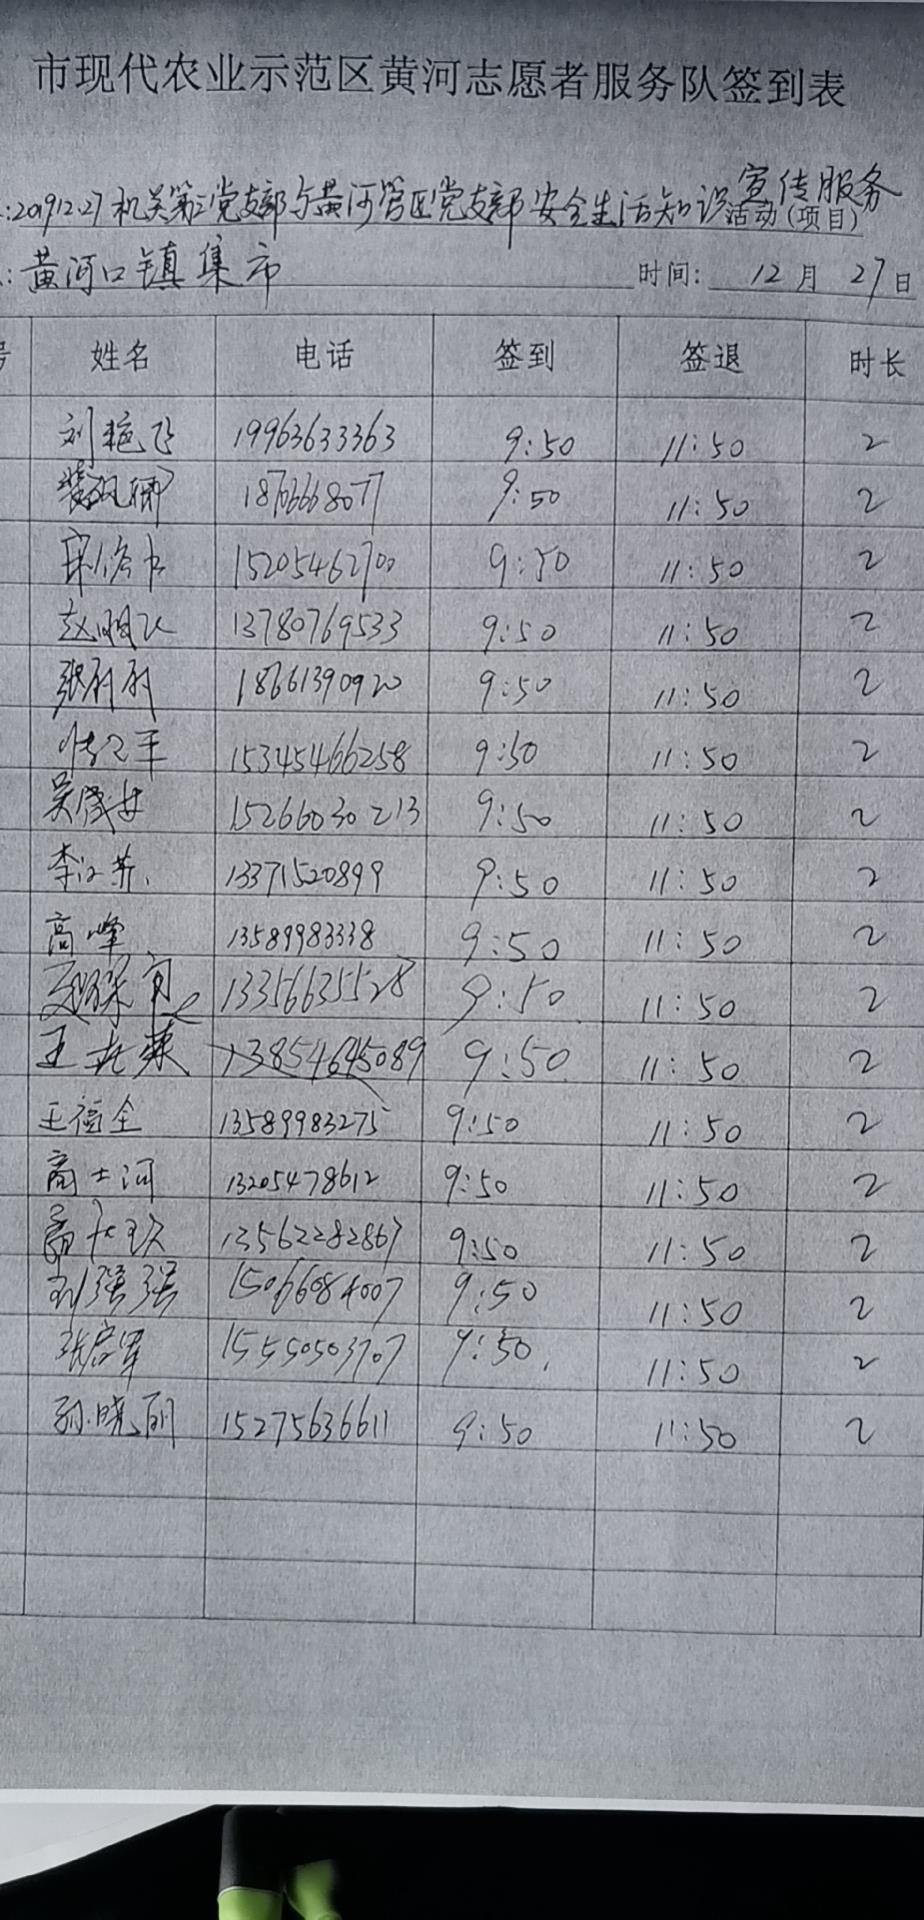 市现代农业示范区黄河志愿者服务队签到表
:2019.12.27机关第二党支部与黄河管区党支部安全生活知识宣传服务
活动(项目)
:黄河口镇集市 时间: 12月27日
号 姓名 电话 签到 签退 时长
刘艳飞 19963633363 9:50 11:50 2
18706668077 9:50 11:50 2
15205462700 9:50 11:50 2
赵明 13780769533 9:50 11:50 2
张丽丽 18661390920 9:50 11:50 2
15345466258 9:50 11:50 2
吴 15266030213 9:50 11:50 2
李 13371520899 9:50 11:50 2
高峰 13589983338 9:50 11:50 2
13356635528 9:50 11:50 2
王 13854645089 9:50 11:50 2
王福全 13589983275 9:50 11:50 2
商士河 13205478612 9:50 11:50 2
13562282867 9:50 11:50 2
刘强强 15066084007 9:50 11:50 2
张 15550503707 9:50 11:50 2
孙晓丽 15275636611 9:50 11:50 2